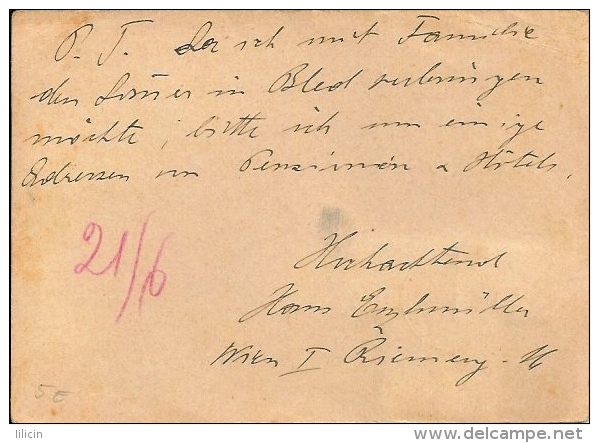 P. T. Da ich mit Familie
den Sommer in Bled verbringen
möchte, bitte ich um einige
Adressen von Pensionen & Hotels.
21/6
Hochachtend
Hans
Wien I Riemerg. 16
5 E
lilicin
www.delcampe.net